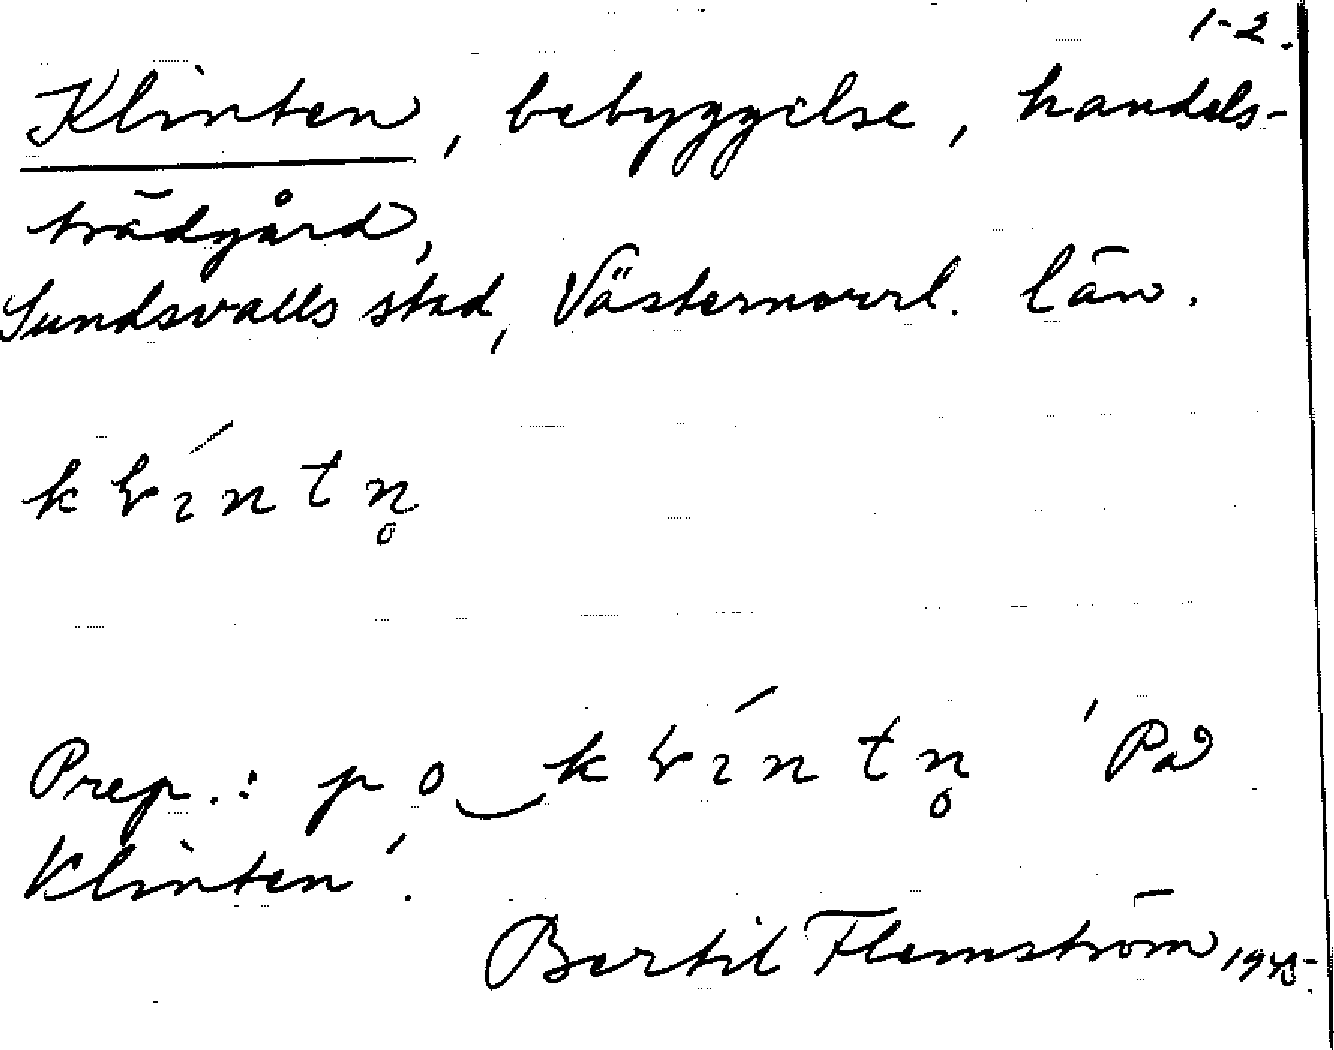 1-2.
Klinten, bebyggelse, handels-
trädgård,
Sundsvalls stad, Västernorrl. län.
Prep.: 'På
Klinten'.
Bertil Flemström